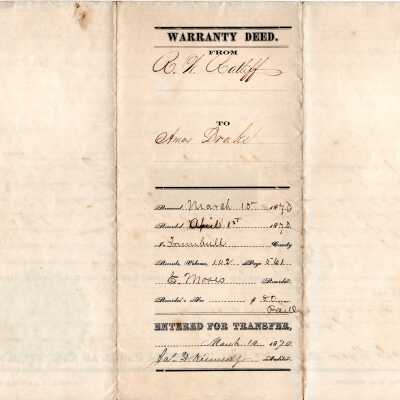 WARRANTY DEED.
FROM
R. W. Ratliff
TO
Amos Drake
Received March 10 1870
Recorded April 1st 1870
in Trumbull County
Records, Volume 112 Page 561
E. Moses Recorder
Recorder's Fee $
Paid
ENTERED FOR TRANSFER,
March 10 1870
Jas. D. Kennedy Auditor.